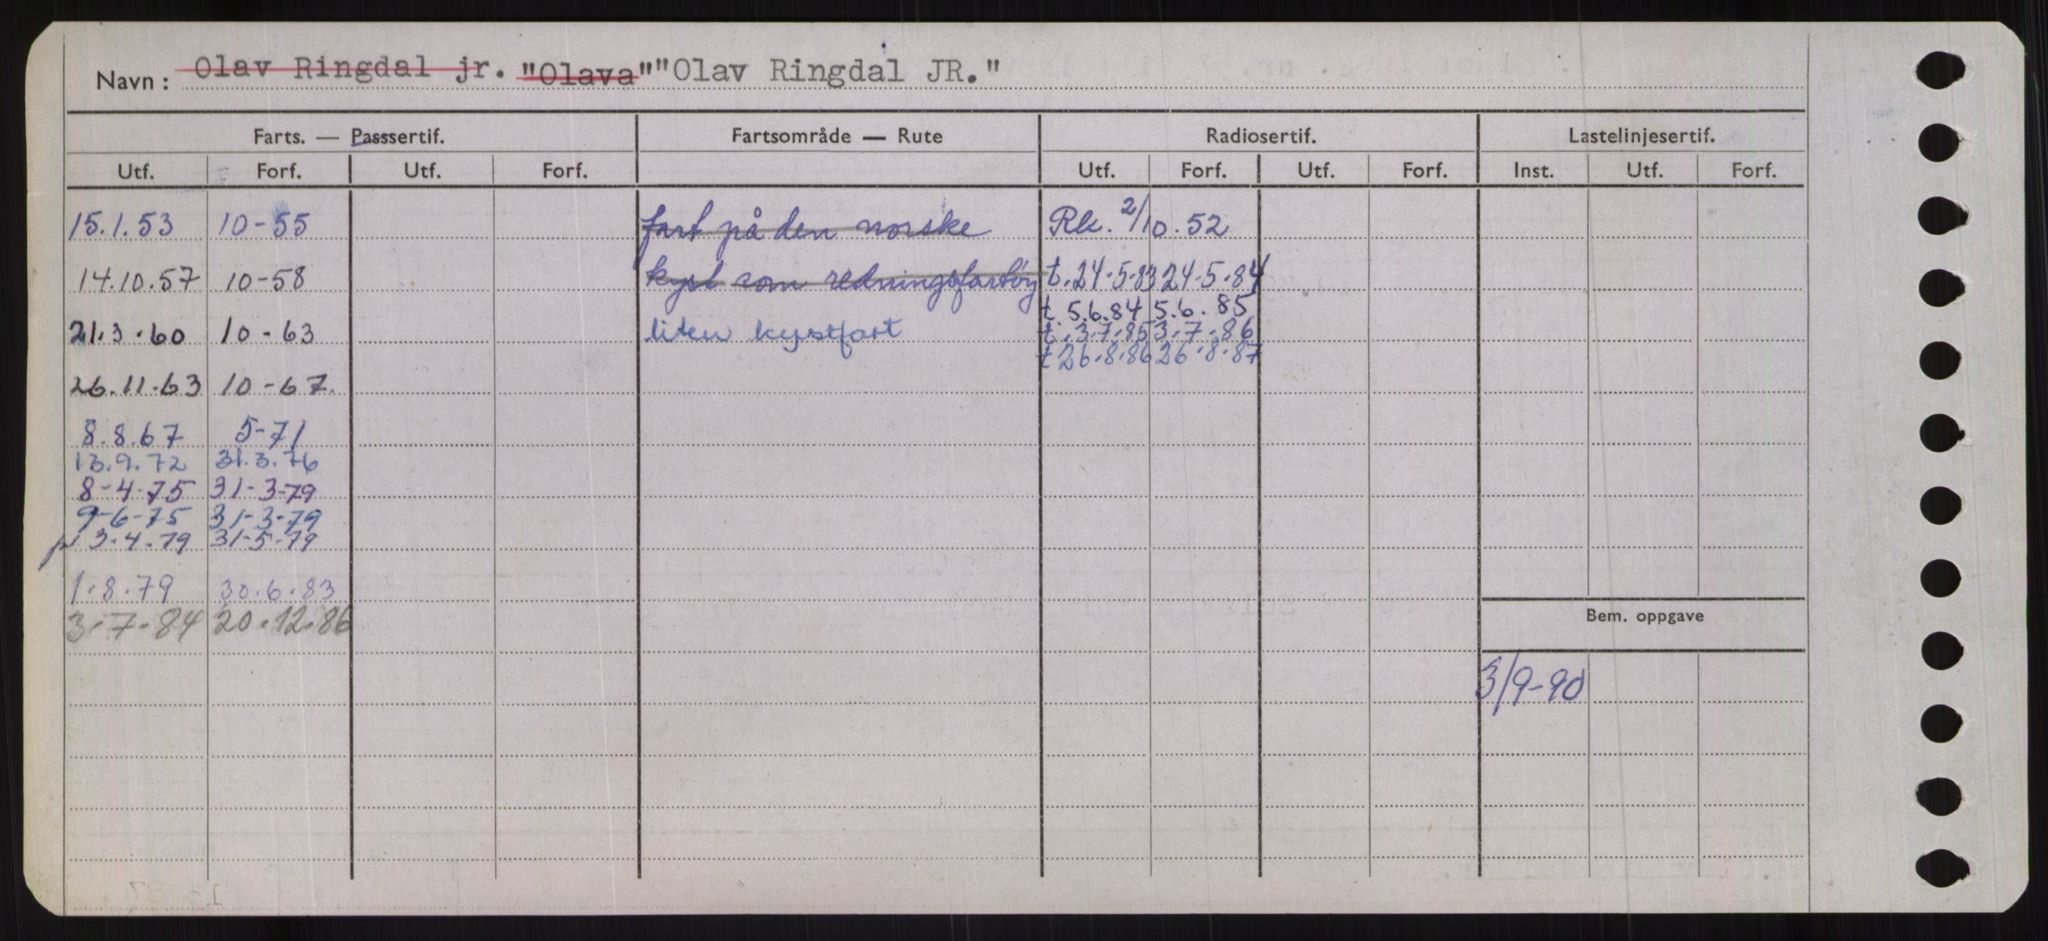 Navn : Olav Ringdal jr. "Olava" "Olav Ringdal JR."
Farts. — Passsertif. Fartsområde — Rute Radiosertif. Lastelinjesertif.
Utf. Forf. Utf. Forf. Utf. Forf. Utf. Forf. Inst. Utf. Forf.
15.1.53 10-55 fart på den norske Rk. 2/10.52
14.10.57 10-58 kyst som redningsfartöy t.24.5.83 24.5.84
t. 5.6.84 5.6.85
21.3.60 10-63 liten kystfart t.3.7.85 3.7.86
t 26.8.86 26.8.87
26.11.63 10-67.
8.8.67 5-71
13.9.72 31.3.76
8-4-75 31-3-79
9-6-75 31-3-79
3.4.79 31-5-79
1.8.79 30.6.83
3.7.84 20.12.86
Bem. oppgave
3/9-90